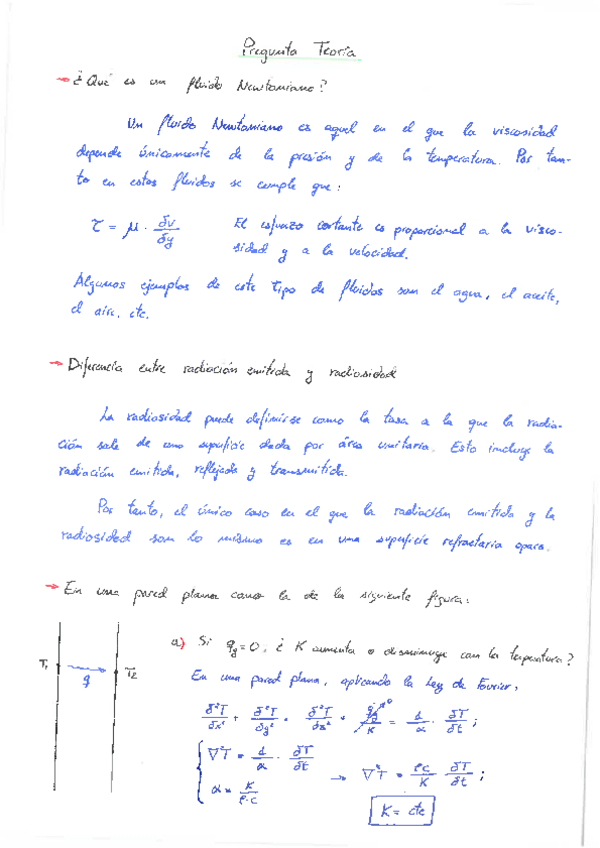 Pregunta Teoría
→ ¿Qué es un fluido Newtoniano?
Un fluido Newtoniano es aquel en el que la viscosidad
depende únicamente de la presión y de la temperatura. Por tan-
to en estos fluidos se cumple que:
τ = μ · δv/δy El esfuerzo cortante es proporcional a la visco-
sidad y a la velocidad.
Algunos ejemplos de este tipo de fluidos son el agua, el aceite,
el aire, etc.
→ Diferencia entre radiación emitida y radiosidad
La radiosidad puede definirse como la tasa a la que la radia-
ción sale de una superficie dada por área unitaria. Esto incluye la
radiación emitida, reflejada y transmitida.
Por tanto, el único caso en el que la radiación emitida y la
radiosidad son lo mismo es en una superficie refractaria opaca.
→ En una pared plana como la de la siguiente figura:
T1 q T2
a) Si qg=0, ¿K aumenta o disminuye con la temperatura?
En una pared plana, aplicando la Ley de Fourier,
δ²T/δx² + δ²T/δy² + δ²T/δz² + q̇g/K →0 = 1/α · δT/δt ;
∇²T = 1/α · δT/δt
α = K/ρ·c
→ ∇²T = ρc/K · δT/δt ;
K = cte